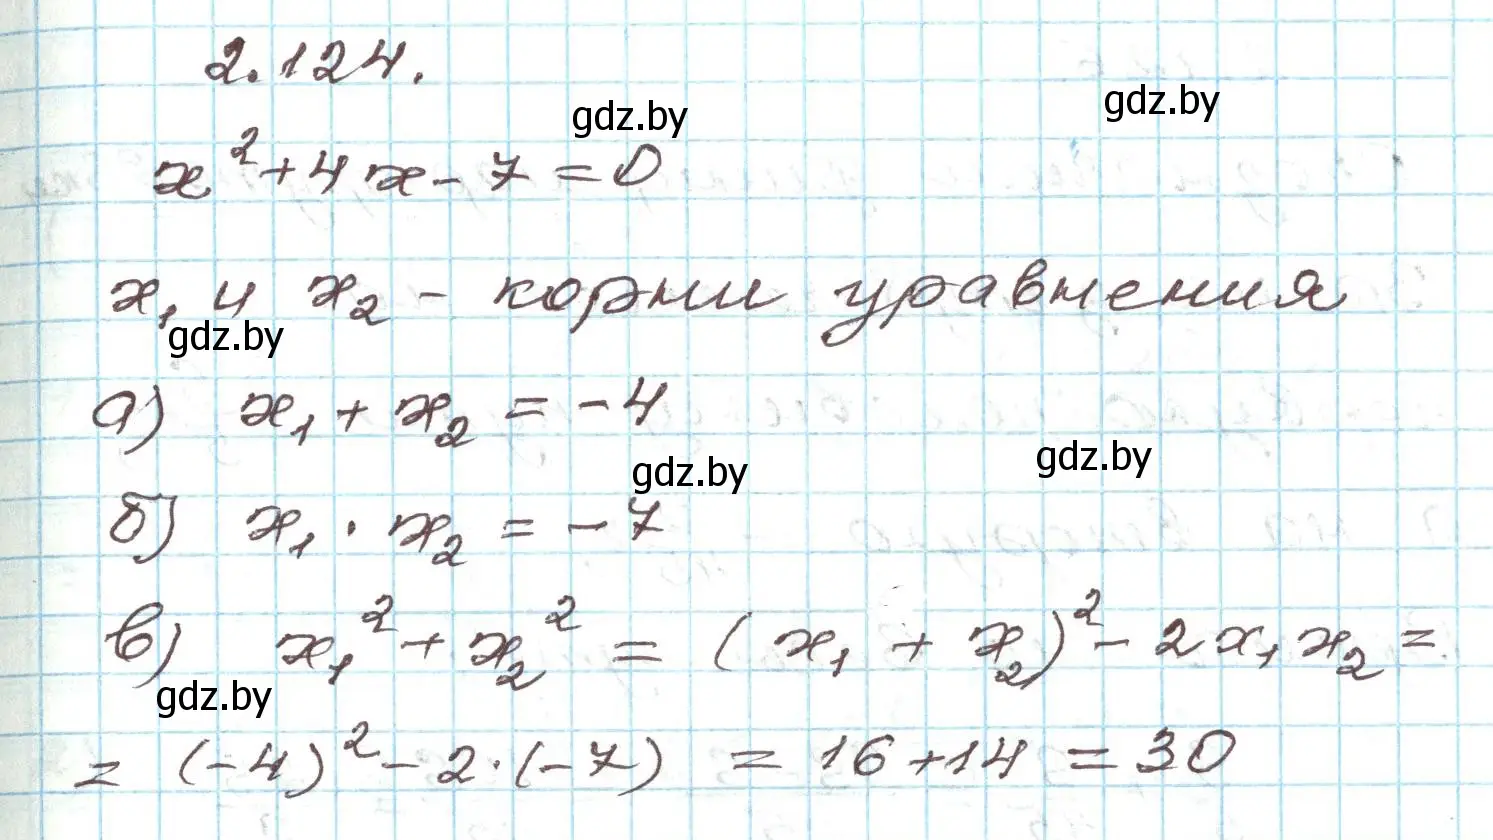 2.124.
gdz.by
gdz.by
x² + 4x - 7 = 0
x₁ и x₂ - корни уравнения
gdz.by
а) x₁ + x₂ = -4
gdz.by
gdz.by
б) x₁ · x₂ = -7
в) x₁² + x₂² = (x₁ + x₂)² - 2x₁x₂ =
gdz.by
= (-4)² - 2·(-7) = 16+14 = 30